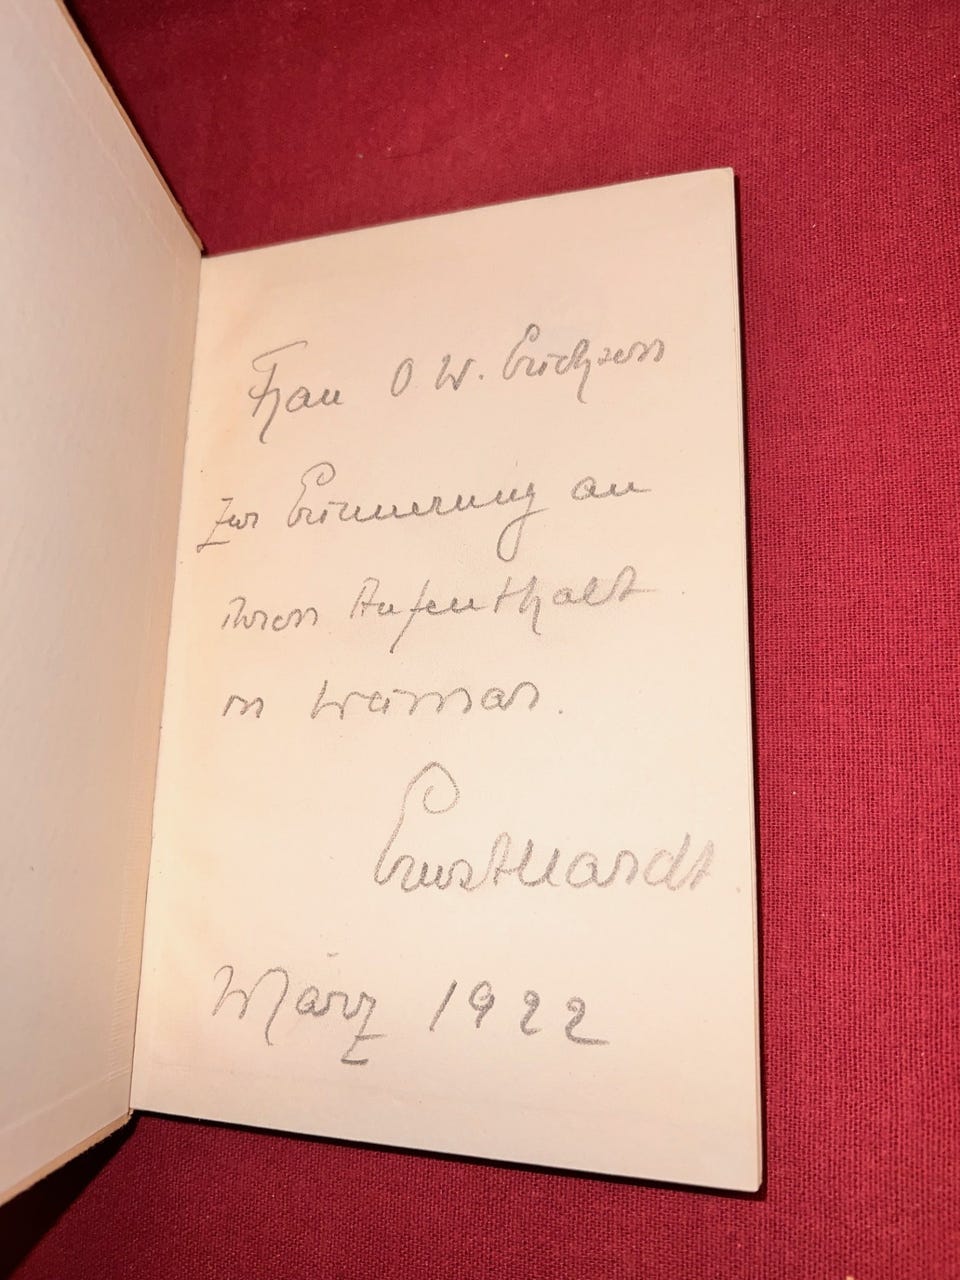 Frau O W. Erichsen
zur Erinnerung an
ihren Aufenthalt
in Weimar.
Ernst Hardt
März 1922